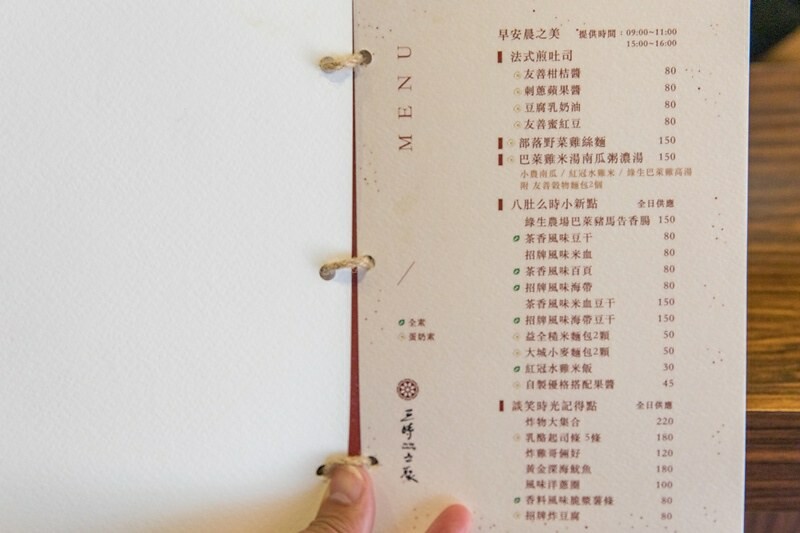 MENU
全素
蛋奶素
早安晨之美 提供時間：09:00~11:00
15:00~16:00
法式煎吐司
友善柑桔醬 80
刺蔥蘋果醬 80
豆腐乳奶油 80
友善蜜紅豆 80
部落野菜雞絲麵 150
巴菜雞米湯南瓜粥濃湯 150
小農南瓜 / 紅冠水雞米 / 綠生巴菜雞高湯
附 友善穀物麵包2個
八肚么時小新點 全日供應
綠生農場巴菜豬馬告香腸 150
茶香風味豆干 80
招牌風味米血 80
茶香風味百頁 80
招牌風味海帶 80
茶香風味米血豆干 150
招牌風味海帶豆干 150
益全糙米麵包2顆 50
大城小麥麵包2顆 50
紅冠水雞米飯 30
自製優格搭配果醬 45
談笑時光記得點 全日供應
炸物大集合 220
乳酪起司條 5條 180
炸雞哥倆好 120
黃金深海魷魚 180
風味洋蔥圈 100
香料風味脆漿薯條 80
招牌炸豆腐 80